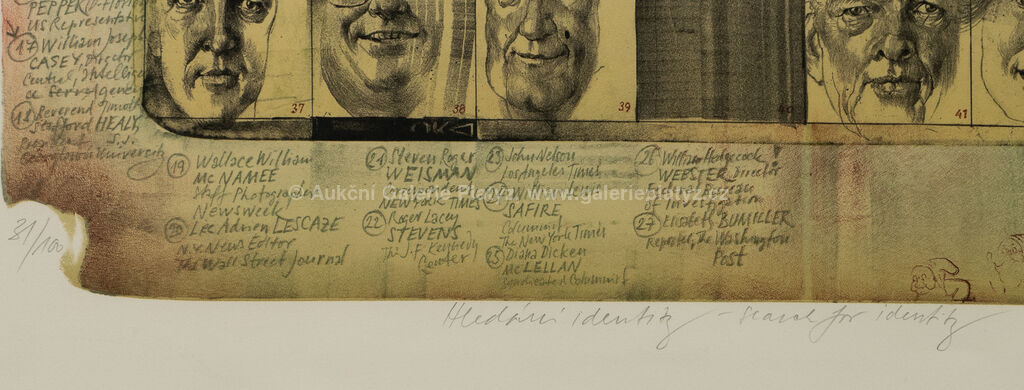 PEPPER
US Representative
17 William Joseph
CASEY, Director
Central, Intelligen
ce
18 Reverend Timoth
Stafford HEALY,
President S.J.
Georgetown University
37
38
39
41
19 Wallace William
MC NAMEE
Staff Photograph
Newsweek
20 Lee Adrien LESCAZE
N.Y. News Editor
The Wall Street Journal
21 Steven Roger
WEISMAN
Correspondent
NEW YORK TIMES
22 Roger Lacey
STEVENS
The J.F. Kennedy
Center
23 John Nelson
Los Angeles Times
24 William Lewis
SAFIRE
Columnist
The New York Times
25 Diana Dicken
MCLELLAN
Syndicated Columnist
26 William Hedgcock
WEBSTER Director
Federal Bureau
of Investigation
27 Elisabeth BUMILLER
Reporter, The Washington
Post
© Aukční Galerie Platýz, www.galerieplatyz.com
31/100
Hledání identity – search for identity